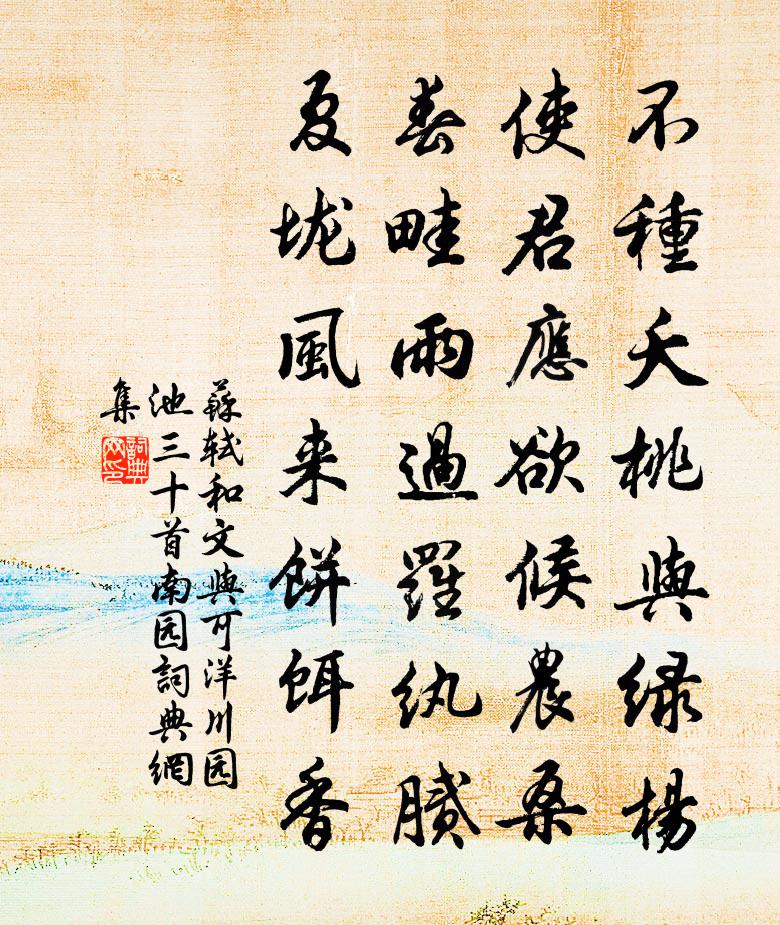 不種夭桃與绿楊
使君應欲候農桑
春畦雨過羅紈膩
夏垅風来餅餌香
蘇轼和文與可洋川园
池三十首南园詞典網
集
詞典
网印